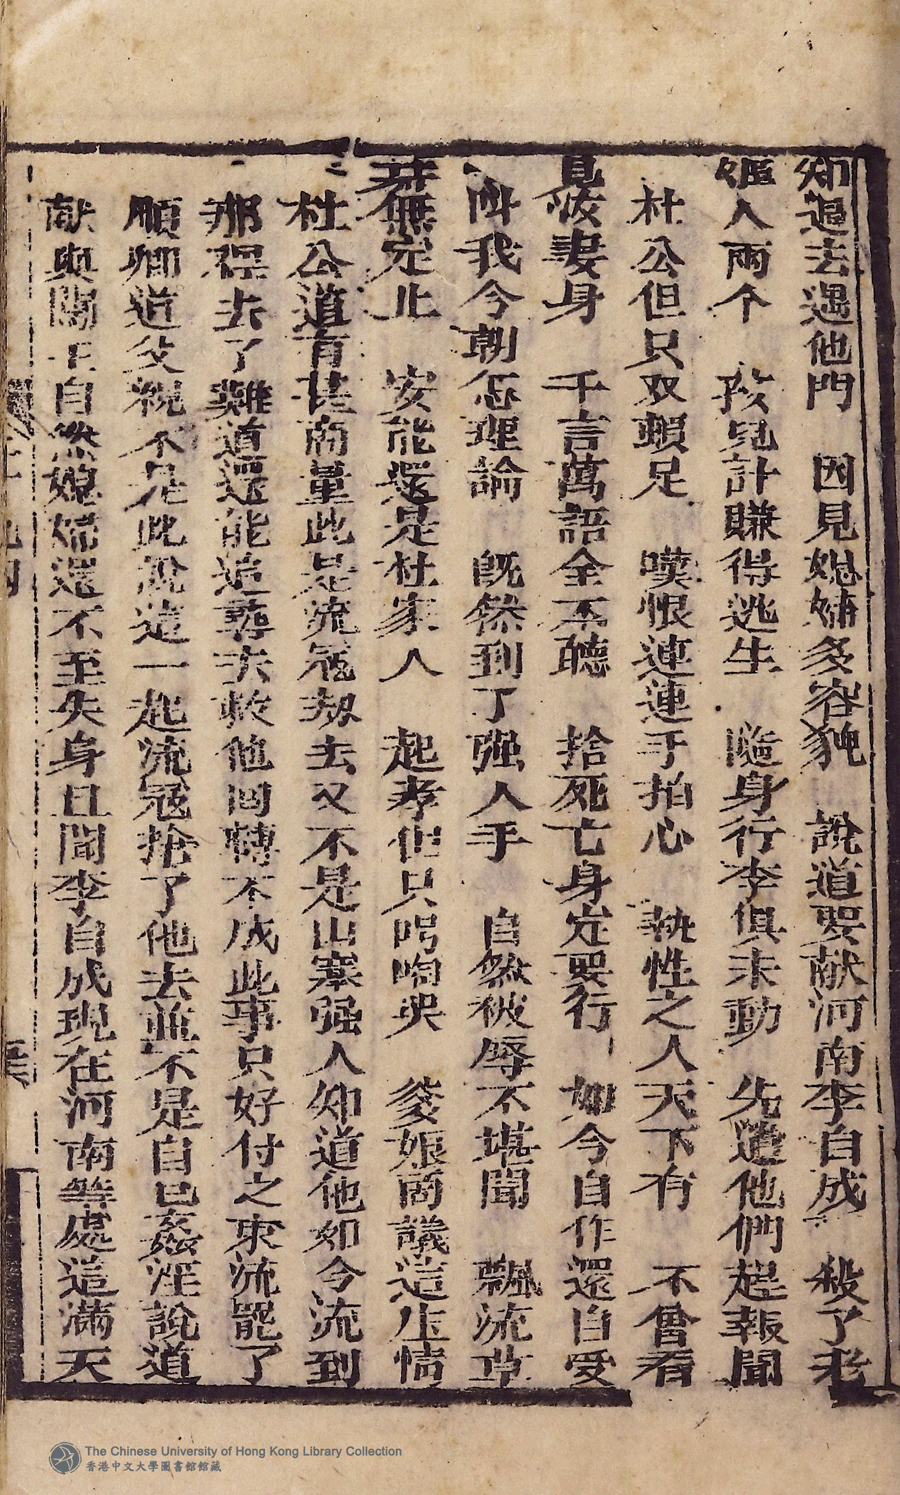 知過去遇他門　因見媳婦多容貌　說道要献河南李自成　殺了老
嫗人兩个　孩兒計賺得逃生　隨身行李俱未動　先遣他們趕報聞
杜公但只双頓足　嘆恨連連手拍心　執性之人天下有　不曾看
見彼妻身　千言萬語全不聽　捨死亡身定要行　如今自作還自受
叫我今朝怎理論　旣然到了强人手　自然被辱不堪聞　飄流草
莽無定止　安能還是杜家人　起孝但只号啕哭　爹娘商議這庄情
杜公道有甚商量此是流寇刼去又不是山寨强人知道他如今流到
那裡去了難道還能追尋去救他囘轉不成此事只好付之東流罷了
順卿道父親不是此說這一起流寇搶了他去並不是自已姦淫說道
献與闖王自然媳婦還不至失身且聞李自成現在河南等處這滿天
The Chinese University of Hong Kong Library Collection
香港中文大學圖書館館藏